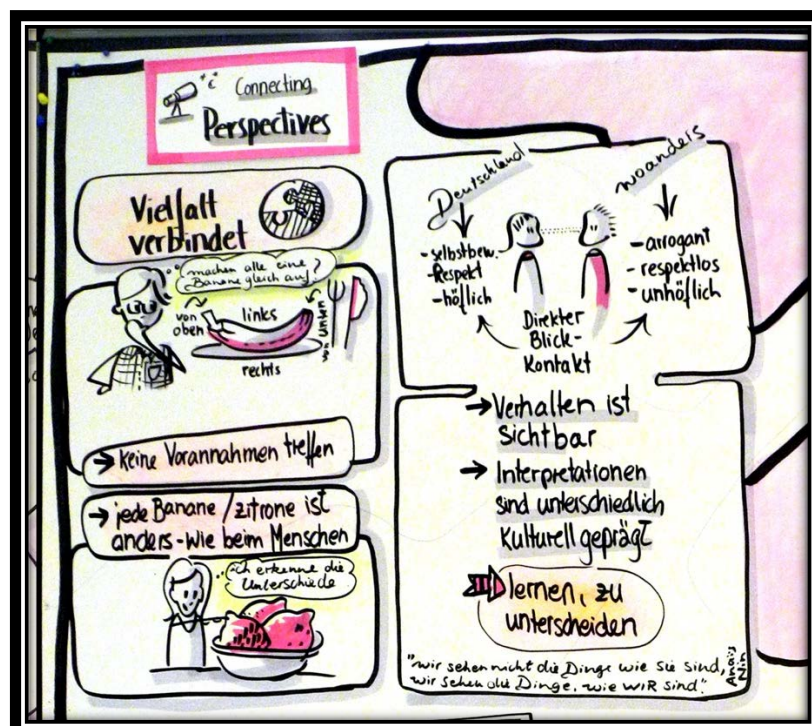 Connecting
Perspectives
Vielfalt
verbindet
machen alle eine
Banane gleich auf?
von
oben
links
rechts
von unten
→ keine Vorannahmen treffen
→ jede Banane / zitrone ist
anders - wie beim Menschen
ich erkenne die
Unterschiede
Deutschland
- selbstbew.
- Respekt
- höflich
woanders
- arrogant
- respektlos
- unhöflich
Direkter
Blick-
Kontakt
→ Verhalten ist
sichtbar
→ Interpretationen
sind unterschiedlich
kulturell geprägt
lernen, zu
unterscheiden
"wir sehen nicht die Dinge wie sie sind,
wir sehen die Dinge, wie WIR sind."
Anaïs
Nin